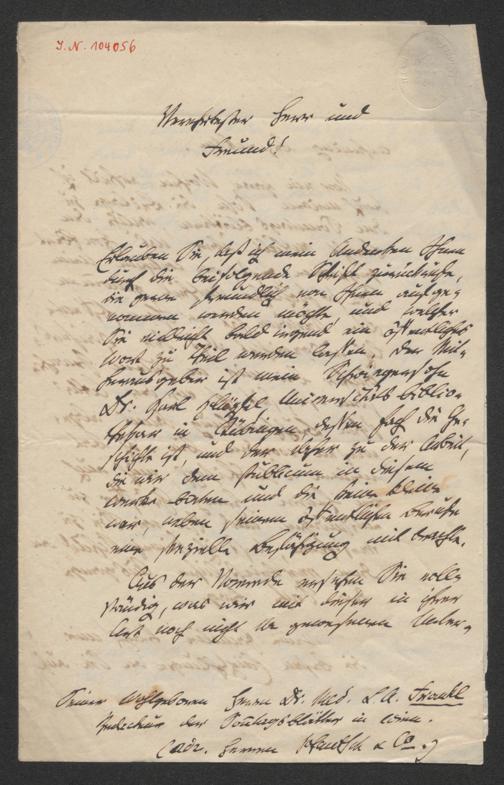 I. N. 104056
Verehrtester Herr und
Freund!
Erlauben Sie, daß ich mein Andenken Ihnen
durch die beifolgende Schrift zurückrufe,
die gerne freundlich von Ihnen aufge-
nommen werden möchte, und welcher
Sie vielleicht bald irgend ein öffentliches
Wort zu Theil werden lassen. Der Mit-
herausgeber ist mein Schwiegersohn
Dr. Karl Klüpfel, Universitätsbiblio-
thekar in Tübingen, dessen Fach die Ge-
schichte ist und der daher zu der Arbeit,
die wir dem Publicum in diesem
Werke bieten und die keine kleine
war, neben seinem öffentlichen Berufe
eine spezielle Befähigung mit brachte.
Aus der Vorrede ersehen Sie voll-
ständig, was wir mit diesem in ihrer
Art noch nicht da gewesenen Unter-
Seiner Wohlgeboren Herrn Dr. Med. L. A. Frankl
Redacteur der Sonntagsblätter in Wien.
(adr. Herren & Co.)